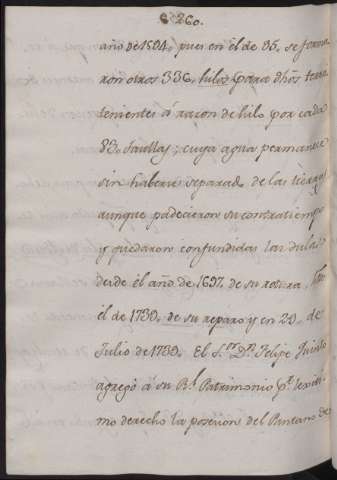 260.
año de 1594, pues en él de 95, se forma
ron otros 336, hilos para dhos terra
tenientes á razon de hilo por cada
83. taullas; cuya agua permanece
sin haberse separado de las tierras
aunque padecieron su contratiempo
y quedaron confundidas las dulas
desde él año de 1697, de su rotura,
él de 1739, de su reparo y en 20, de
Julio de 1739. El S.or D.n Felipe Quinto
agregó á su R.l Patrimonio p.r lexiti
mo derecho la posesion del Pantano de